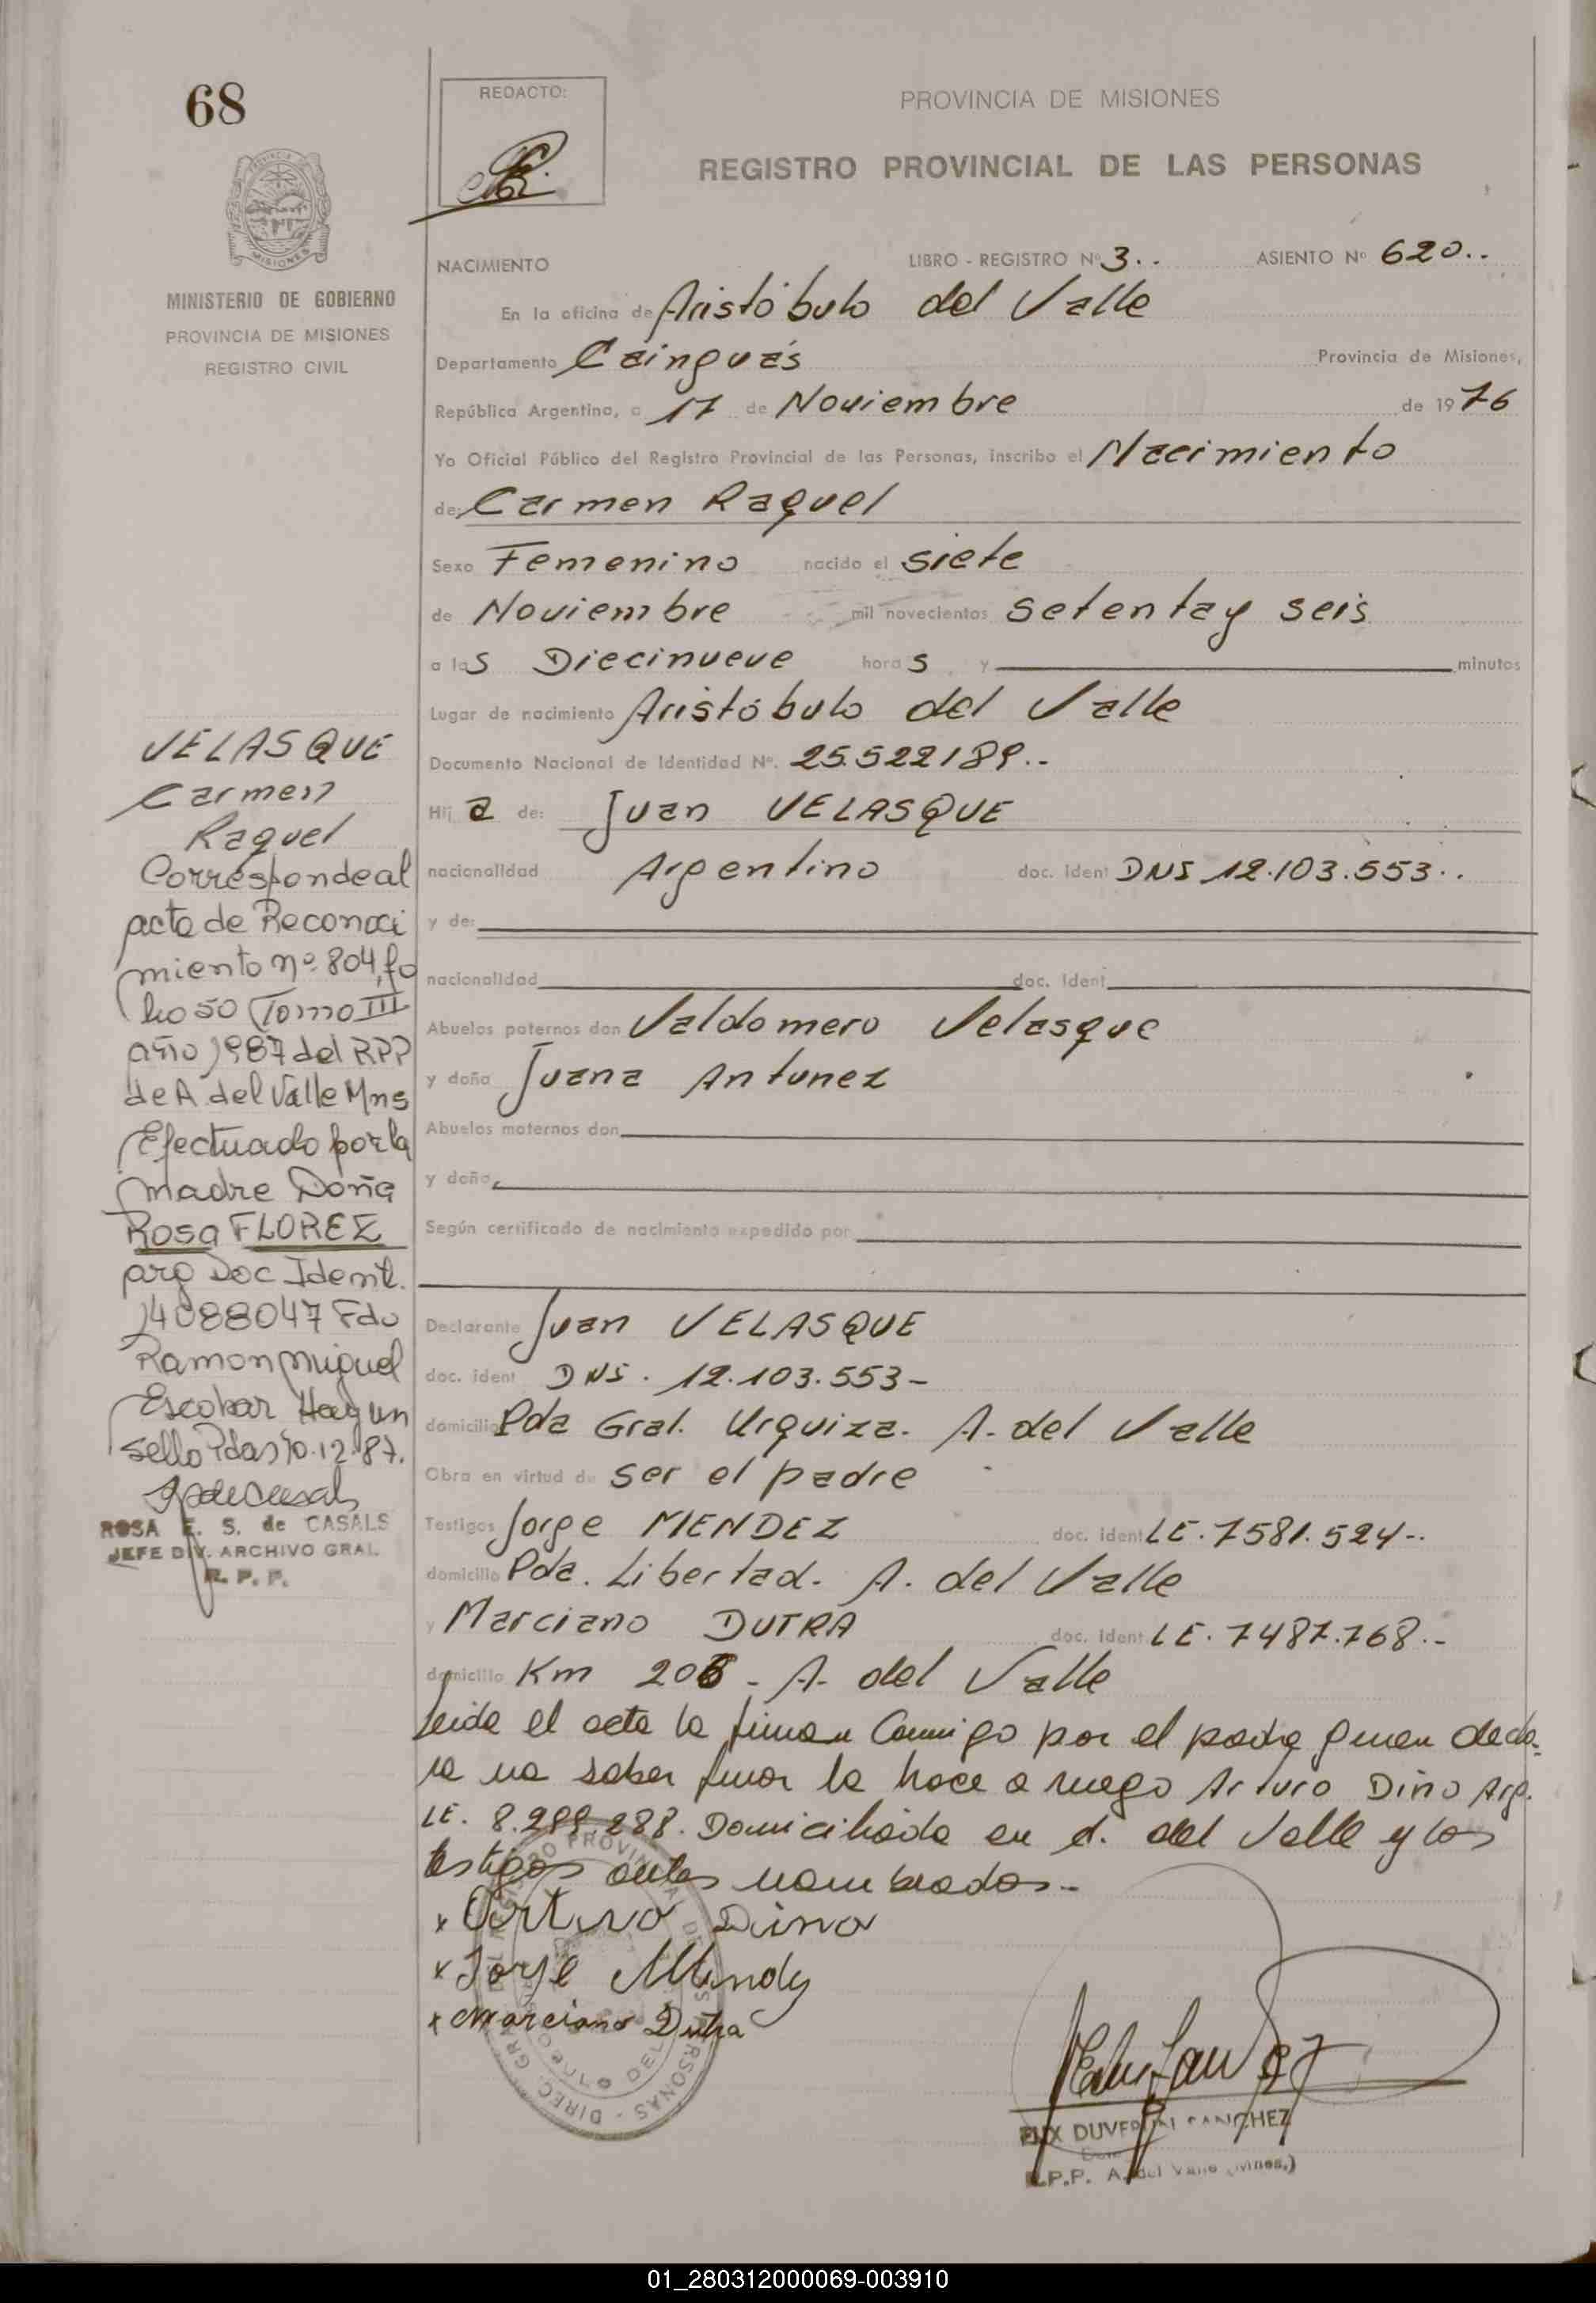 68
REDACTO:
PROVINCIA DE MISIONES
REGISTRO PROVINCIAL DE LAS PERSONAS
PROVINCIA DE
MISIONES
MINISTERIO DE GOBIERNO
PROVINCIA DE MISIONES
REGISTRO CIVIL
NACIMIENTO LIBRO - REGISTRO Nº 3.. ASIENTO Nº 620..
En la oficina de Aristóbulo del Valle
Departamento Cainguás Provincia de Misiones,
República Argentina, a 17 de Noviembre de 19 76
Yo Oficial Público del Registro Provincial de las Personas, inscribo el Nacimiento
de: Carmen Raquel
Sexo Femenino nacido el siete
de Noviembre mil novecientos setentay seis
a las Diecinueve horas y minutos
Lugar de nacimiento Aristóbulo del Valle
Documento Nacional de Identidad Nº. 25.522189.-
Hija de: Juan VELASQUE
nacionalidad Argentino doc. ident DNI 12.103.553..
y de:
nacionalidad doc. ident.
Abuelos paternos don Valdomero Velasque
y doña Juana Antunez
Abuelos maternos don
y doña
Según certificado de nacimiento expedido por
Declarante Juan VELASQUE
doc. ident DNI. 12.103.553-
domicilio Pda Gral. Urquiza. A. del Valle
Obra en virtud de ser el padre
Testigos Jorge MENDEZ doc. ident LE. 7581.524-.
domicilio Pda. Libertad. A. del Valle
y Marciano DUTRA doc. ident LE. 7487.768.-
domicilio Km 206 - A. del Valle
Leida el acta la firman Conmigo por el padre quien decla-
ra no saber firmar lo hace a ruego Arturo Dino Arg.
LE. 8.299.288. Domiciliado en A. del Valle y los
testigos antes nombrados.-
x Arturo Dino
x Jorge Mendez
x Marciano Dutra
VELASQUE
Carmen
Raquel
Corresponde al
acta de Reconoci
miento nº 804, fo
lio 50 Tomo III
año 1987 del RPP
de A del Valle Mns
Efectuado por la
madre Doña
Rosa FLOREZ
arg Doc Ident.
14088047 Fdo
Ramon Miguel
Escobar Hay un
sello Pdas 10.12.87.
ROSA E. S. de CASALS
JEFE DIV. ARCHIVO GRAL.
R. P. P.
DUVE SANCHEZ
R.P.P. A. del Valle (Mnes.)
01_280312000069-003910